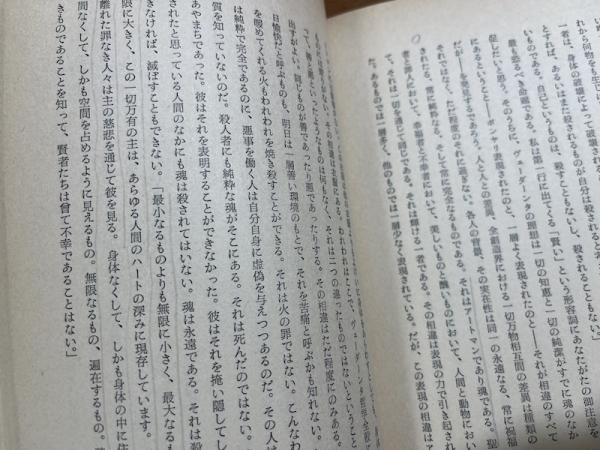 れから何物をも生じ
一者は、身体の破壊によって破壊され
あるいはまた殺されるものが自分は殺されると
とすれば、自己というものは、殺すこともないし、殺され
最も恐るべき命題である。私は第一行に出てくる「賢い」という形容詞にあなたがたの御注意を
促したいと思う。そのうちに、ヴェーダーンタの理想は一切の知恵と一切の純潔がすでに魂のなか
ボンヤリ表現されたのと、一層よく表現されたのと――それが相違のすべて
だが――を発見するであろう。人と人との差異、全創造界における一切万物相互間の差異は種類の
それではなく、ただ程度のそれに過ぎない。各人の背景、その実在性は同一の永遠なる、常に祝福
常に純粋なる、そして常に完全なるものである。それはアートマンであり魂である。聖
者と罪人において、幸福者と不幸者において、美しいものと醜いものにおいて、人間と動物におい
て、それは一切を通じて同じである。それは輝ける一者である。その相違は表現の力で引き起され
た。あるものでは一層多く、他のものでは一層少なく表現されている。だが、この表現の相違はア
われわれはここで、ヴェーダーンタ哲学全般に
て、善と悪といったようなものは何もなく、それは二つの違ったものではないということ
出すがよい。同じものが善であったり悪であったりする。その相違はただ程度にのみある。
日愉快だと呼ぶものも、明日は一層善い環境のもとで、それを苦痛と呼ぶかも知れない。わ
を暖めてくれる火もわれわれを焼き殺すことができる。それは火の罪ではない。こんなわ
は純粋で完全であるのに、悪事を働く人は自分自身に虚偽を与えつつあるのだ。その人は
質を知っていないのだ。殺人者にも純粋な魂がそこにある。それは死んだのではない。
あやまちであった。彼はそれを表明することができなかった。彼はそれを掩い隠してし
されたと思っている人間のなかにも魂は殺されてはいない。魂は永遠である。それは殺
きなければ、滅ぼすこともできない。「最小なるものよりも無限に小さく、最大なるも
限に大きく、この一切万有の主は、あらゆる人間のハートの深みに現存しています。
離れた罪なき人々は主の慈悲を通じて彼を見る。身体なくして、しかも身体の中に住
間なくして、しかも空間を占めるように見えるもの。無限なるもの、遍在するもの。
きものであることを知って、賢者たちは曾て不幸であることはない。」